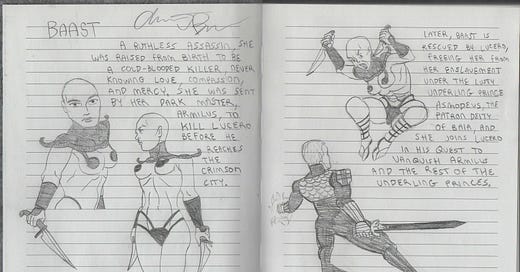 BAAST
A RUTHLESS ASSASSIN, SHE
WAS RAISED FROM BIRTH TO BE
A COLD-BLOODED KILLER, NEVER
KNOWING LOVE, COMPASSION,
AND MERCY, SHE WAS SENT
BY HER DARK MASTER,
ARMILUS, TO
KILL LUCERO
BEFORE HE
REACHES
THE
CRIMSON
CITY.
LATER, BAAST IS
RESCUED BY LUCERO,
FREEING HER FROM
HER ENSLAVEMENT
UNDER THE LUSTY
UNDERLING PRINCE
ASMODEUS, THE
PATRON DEITY
OF BAIA, AND
SHE JOINS LUCERO
IN HIS QUEST TO
VANQUISH ARMILUS
AND THE REST OF THE
UNDERLING PRINCES.